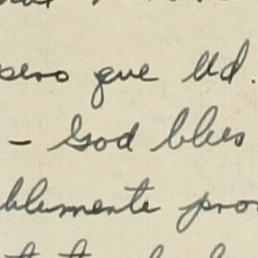 pero que Ud.
- God bles
blemente pro